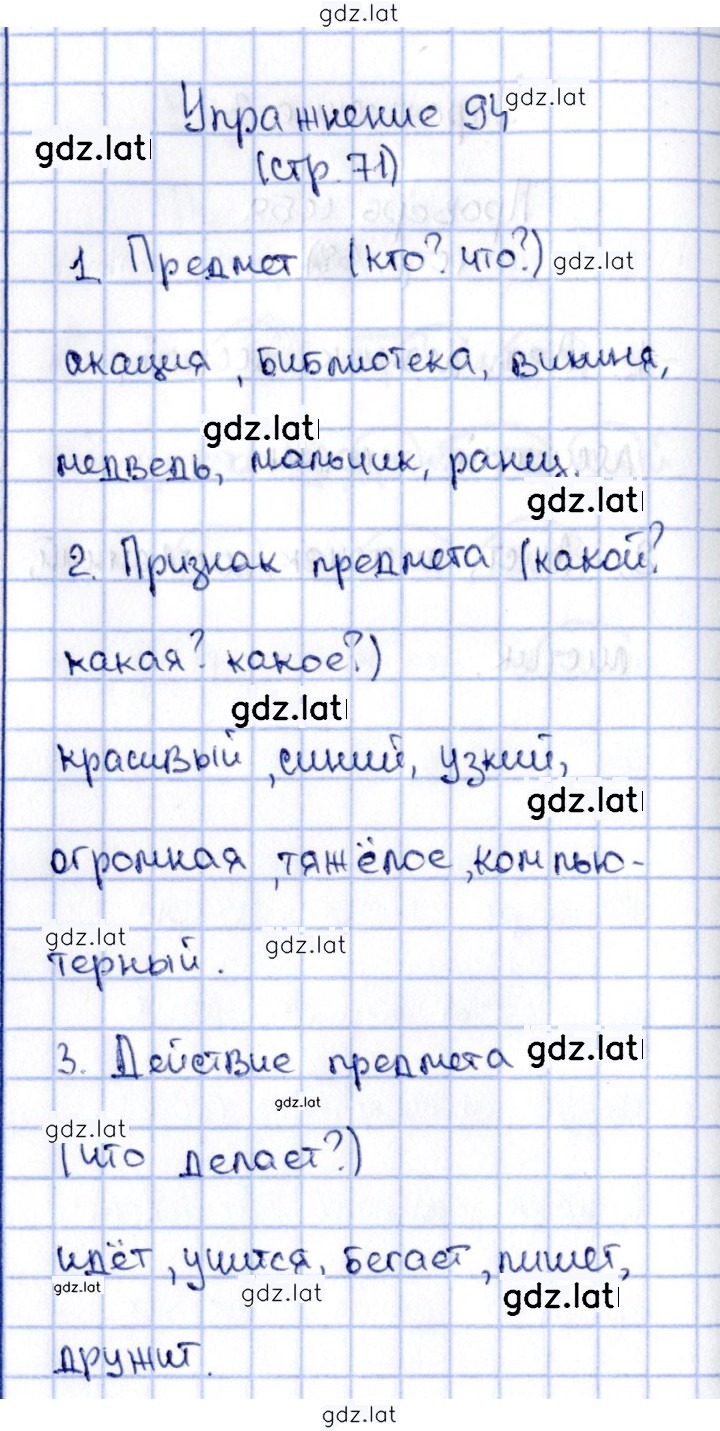 gdz.lat
Упражнение 94 gdz.lat
gdz.lat
(стр. 71)
1. Предмет (кто? что?) gdz.lat
акация, библиотека, вишня,
gdz.lat
медведь, мальчик, ранец.
gdz.lat
2. Признак предмета (какой?
какая? какое?)
gdz.lat
красивый, синий, узкий,
gdz.lat
огромная, тяжёлое, компью-
gdz.lat gdz.lat
терный.
3. Действие предмета gdz.lat
gdz.lat
gdz.lat
(что делает?)
идёт, учится, бегает, пишет,
gdz.lat gdz.lat gdz.lat
дружит.
gdz.lat